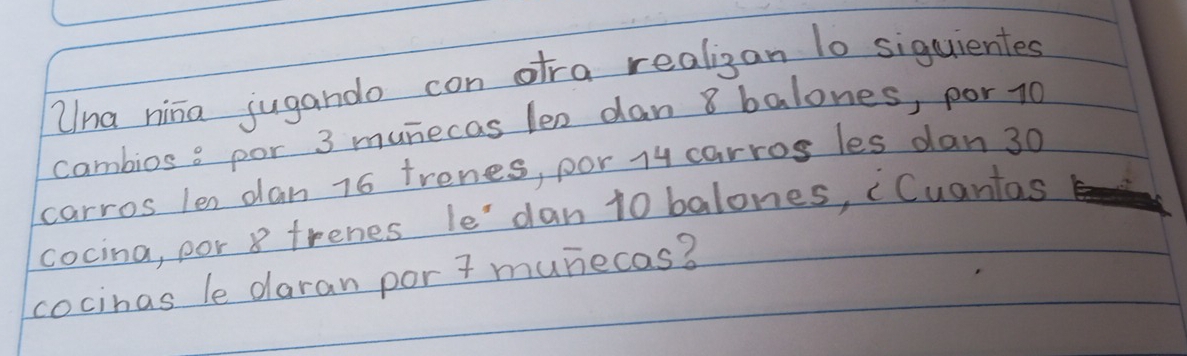 Una niña jugando con otra realizan lo siguientes
cambios: por 3 muñecas les dan 8 balones, por 10
carros les dan 16 trenes, por 14 carros les dan 30
cocina, por 8 trenes le dan 10 balones, ¿Cuantas
cocinas le daran por 7 muñecas?